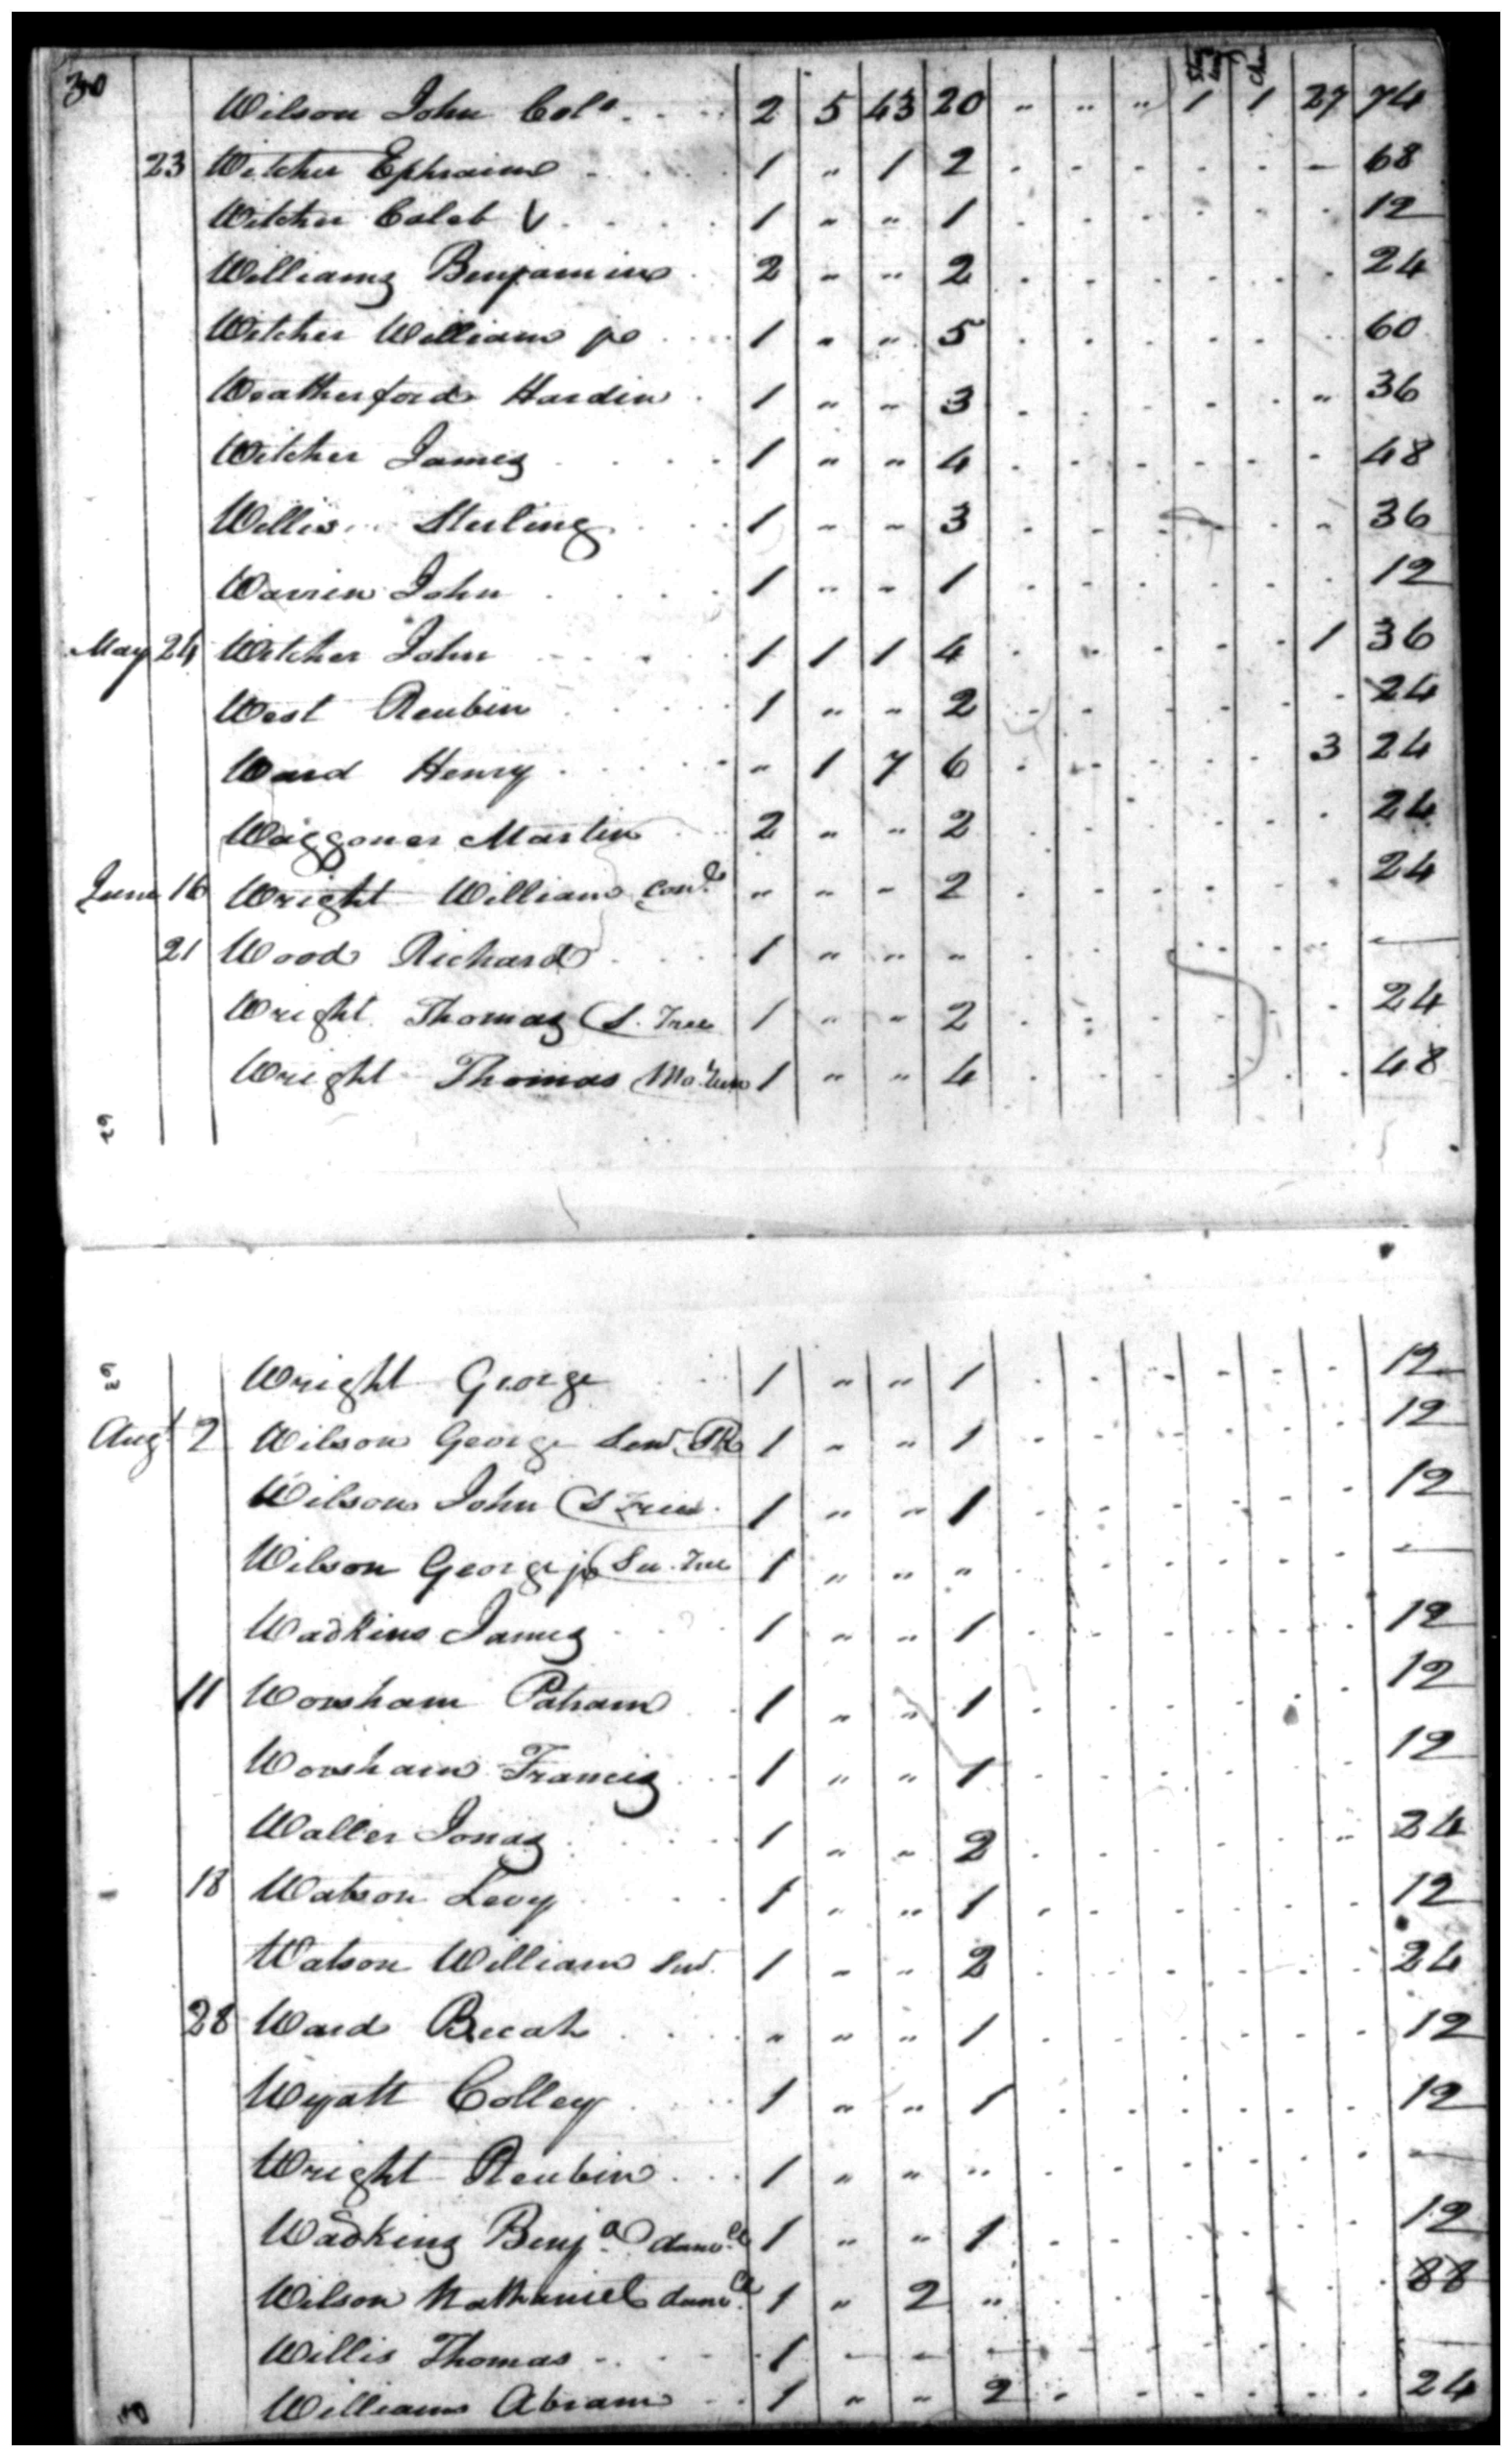 30
Wilson John Colo. 2 5 43 20 " " " 1 1 27 74
23 Witcher Ephraim 1 " 1 2 . . . . . - 68
Witcher Caleb V 1 " " 1 . . . . . . 12
Williams Benjamin 2 " " 2 . . . . . . 24
Witcher William jr 1 " " 5 . . . . . . 60
Weatherford Hardin 1 " " 3 . . . . . " 36
Witcher James 1 " " 4 . . . . . . 48
Willis Sterling 1 " " 3 . . . . . " 36
Warren John 1 " " 1 . . . . . . 12
May 24 Witcher John 1 1 1 4 . . . . . 1 36
West Reubin 1 " " 2 . . . . . . 24
Ward Henry " 1 7 6 . . . . . 3 24
Waggoner Martin 2 " " 2 . . . . . . 24
June 16 Wright William " " " 2 . . . . . . 24
21 Wood Richard 1 " " " . . . . . . —
Wright Thomas (S. Tree 1 " " 2 . . . . . . 24
Wright Thomas 1 " " 4 . . . . . . 48
29
29
Wright George 1 " " 1 . . . . . . 12
Augt 2 Wilson George Senr. 1 " " 1 . . . . . . 12
Wilson John (S Tree 1 " " 1 . . . . . . 12
Wilson George jr (Su. Tree 1 " " " . . . . . . —
Wadkins James 1 " " 1 . . . . . . 12
11 Worsham Patram 1 " " 1 . . . . . . 12
Worsham Francis 1 " " 1 . . . . . . 12
Waller Jonas 1 " " 2 . . . . . " 24
18 Watson Levy 1 " " 1 . . . . . . 12
Watson William Senr. 1 " " 2 . . . . . . 24
28 Ward " " " 1 . . . . . . 12
Wyatt Colley 1 " " 1 . . . . . . 12
Wright Reubin 1 " " " . . . . . . —
Wadkins Benja. 1 " " 1 . . . . . . 12
Wilson Nathaniel 1 " 2 " . . . . . . 88
Willis Thomas 1 - - - - - - - - - —
Williams Abram 1 " " 2 . . . . . . 24
30